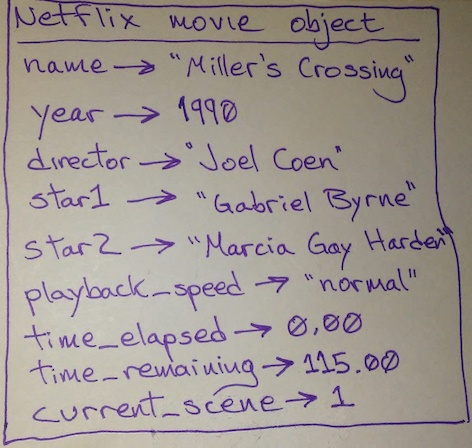 Netflix movie object
name → "Miller's Crossing"
year → 1990
director → "Joel Coen"
star1 → "Gabriel Byrne"
star2 → "Marcia Gay Harden"
playback_speed → "normal"
time_elapsed → 0.00
time_remaining → 115.00
current_scene → 1